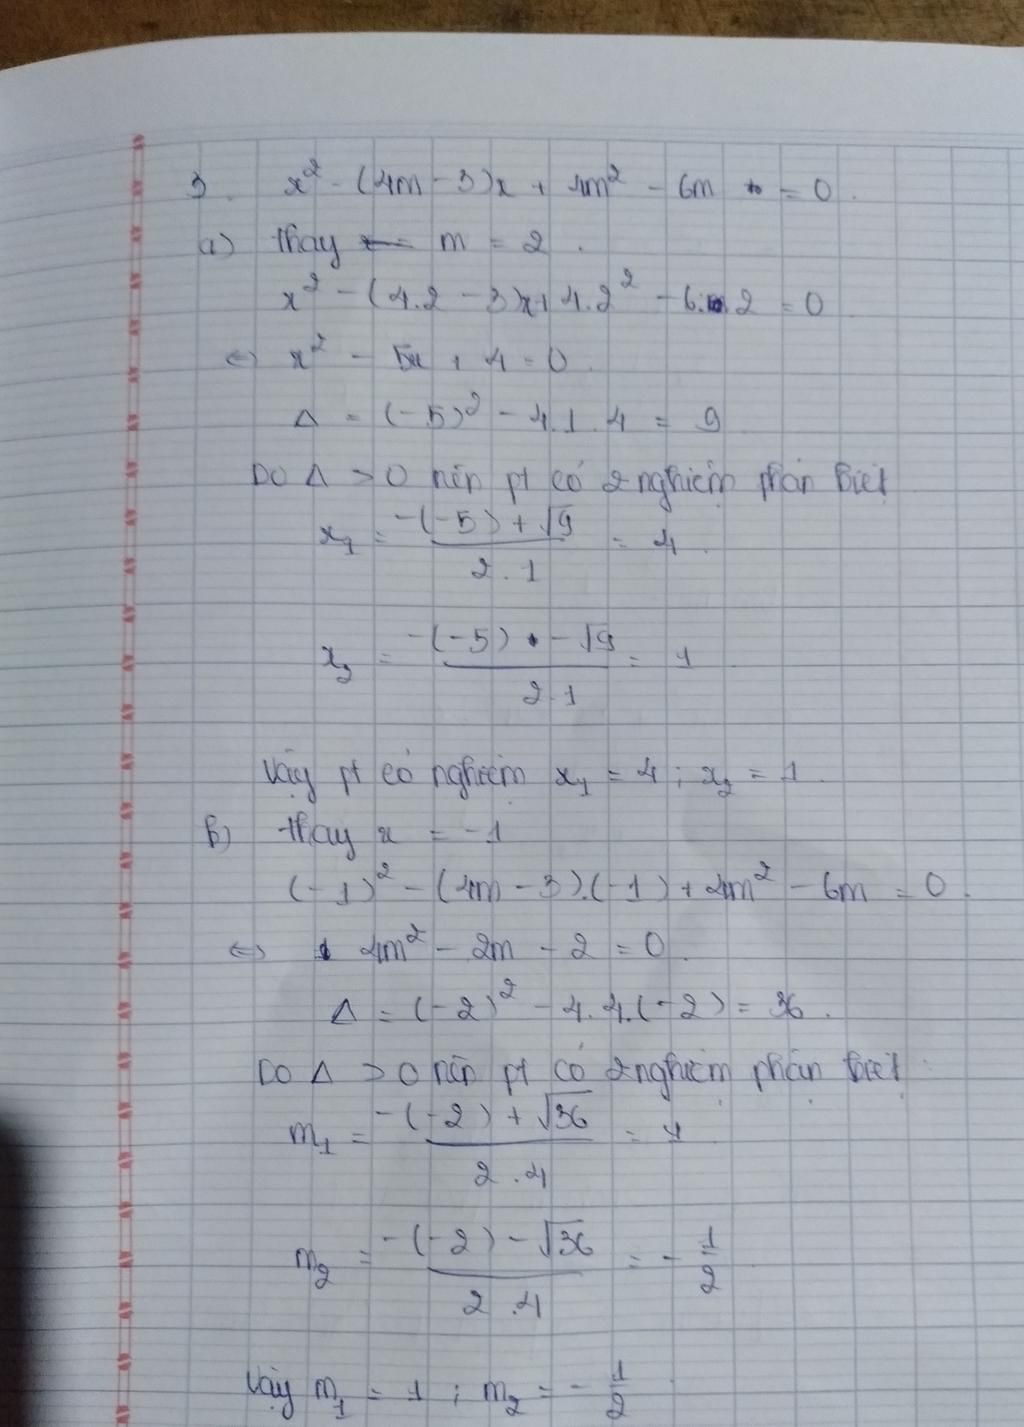 3. x² - (4m - 3)x + 4m² - 6m = 0.
a) thay m = 2.
x² - (4.2 - 3)x + 4.2² - 6.2 = 0
<=> x² - 5x + 4 = 0.
Δ = (-5)² - 4.1.4 = 9
Do Δ > 0 nên pt có 2 nghiệm phân biệt
x₁ = (-(-5) + √9) / (2.1) = 4.
x₂ = (-(-5) - √9) / (2.1) = 1
Vậy pt có nghiệm x₁ = 4 ; x₂ = 1.
b) thay x = -1
(-1)² - (4m - 3).(-1) + 4m² - 6m = 0.
<=> 4m² - 2m - 2 = 0.
Δ = (-2)² - 4.4.(-2) = 36.
Do Δ > 0 nên pt có 2 nghiệm phân biệt
m₁ = (-(-2) + √36) / (2.4) = 1
m₂ = (-(-2) - √36) / (2.4) = -1/2
Vậy m₁ = 1 ; m₂ = -1/2